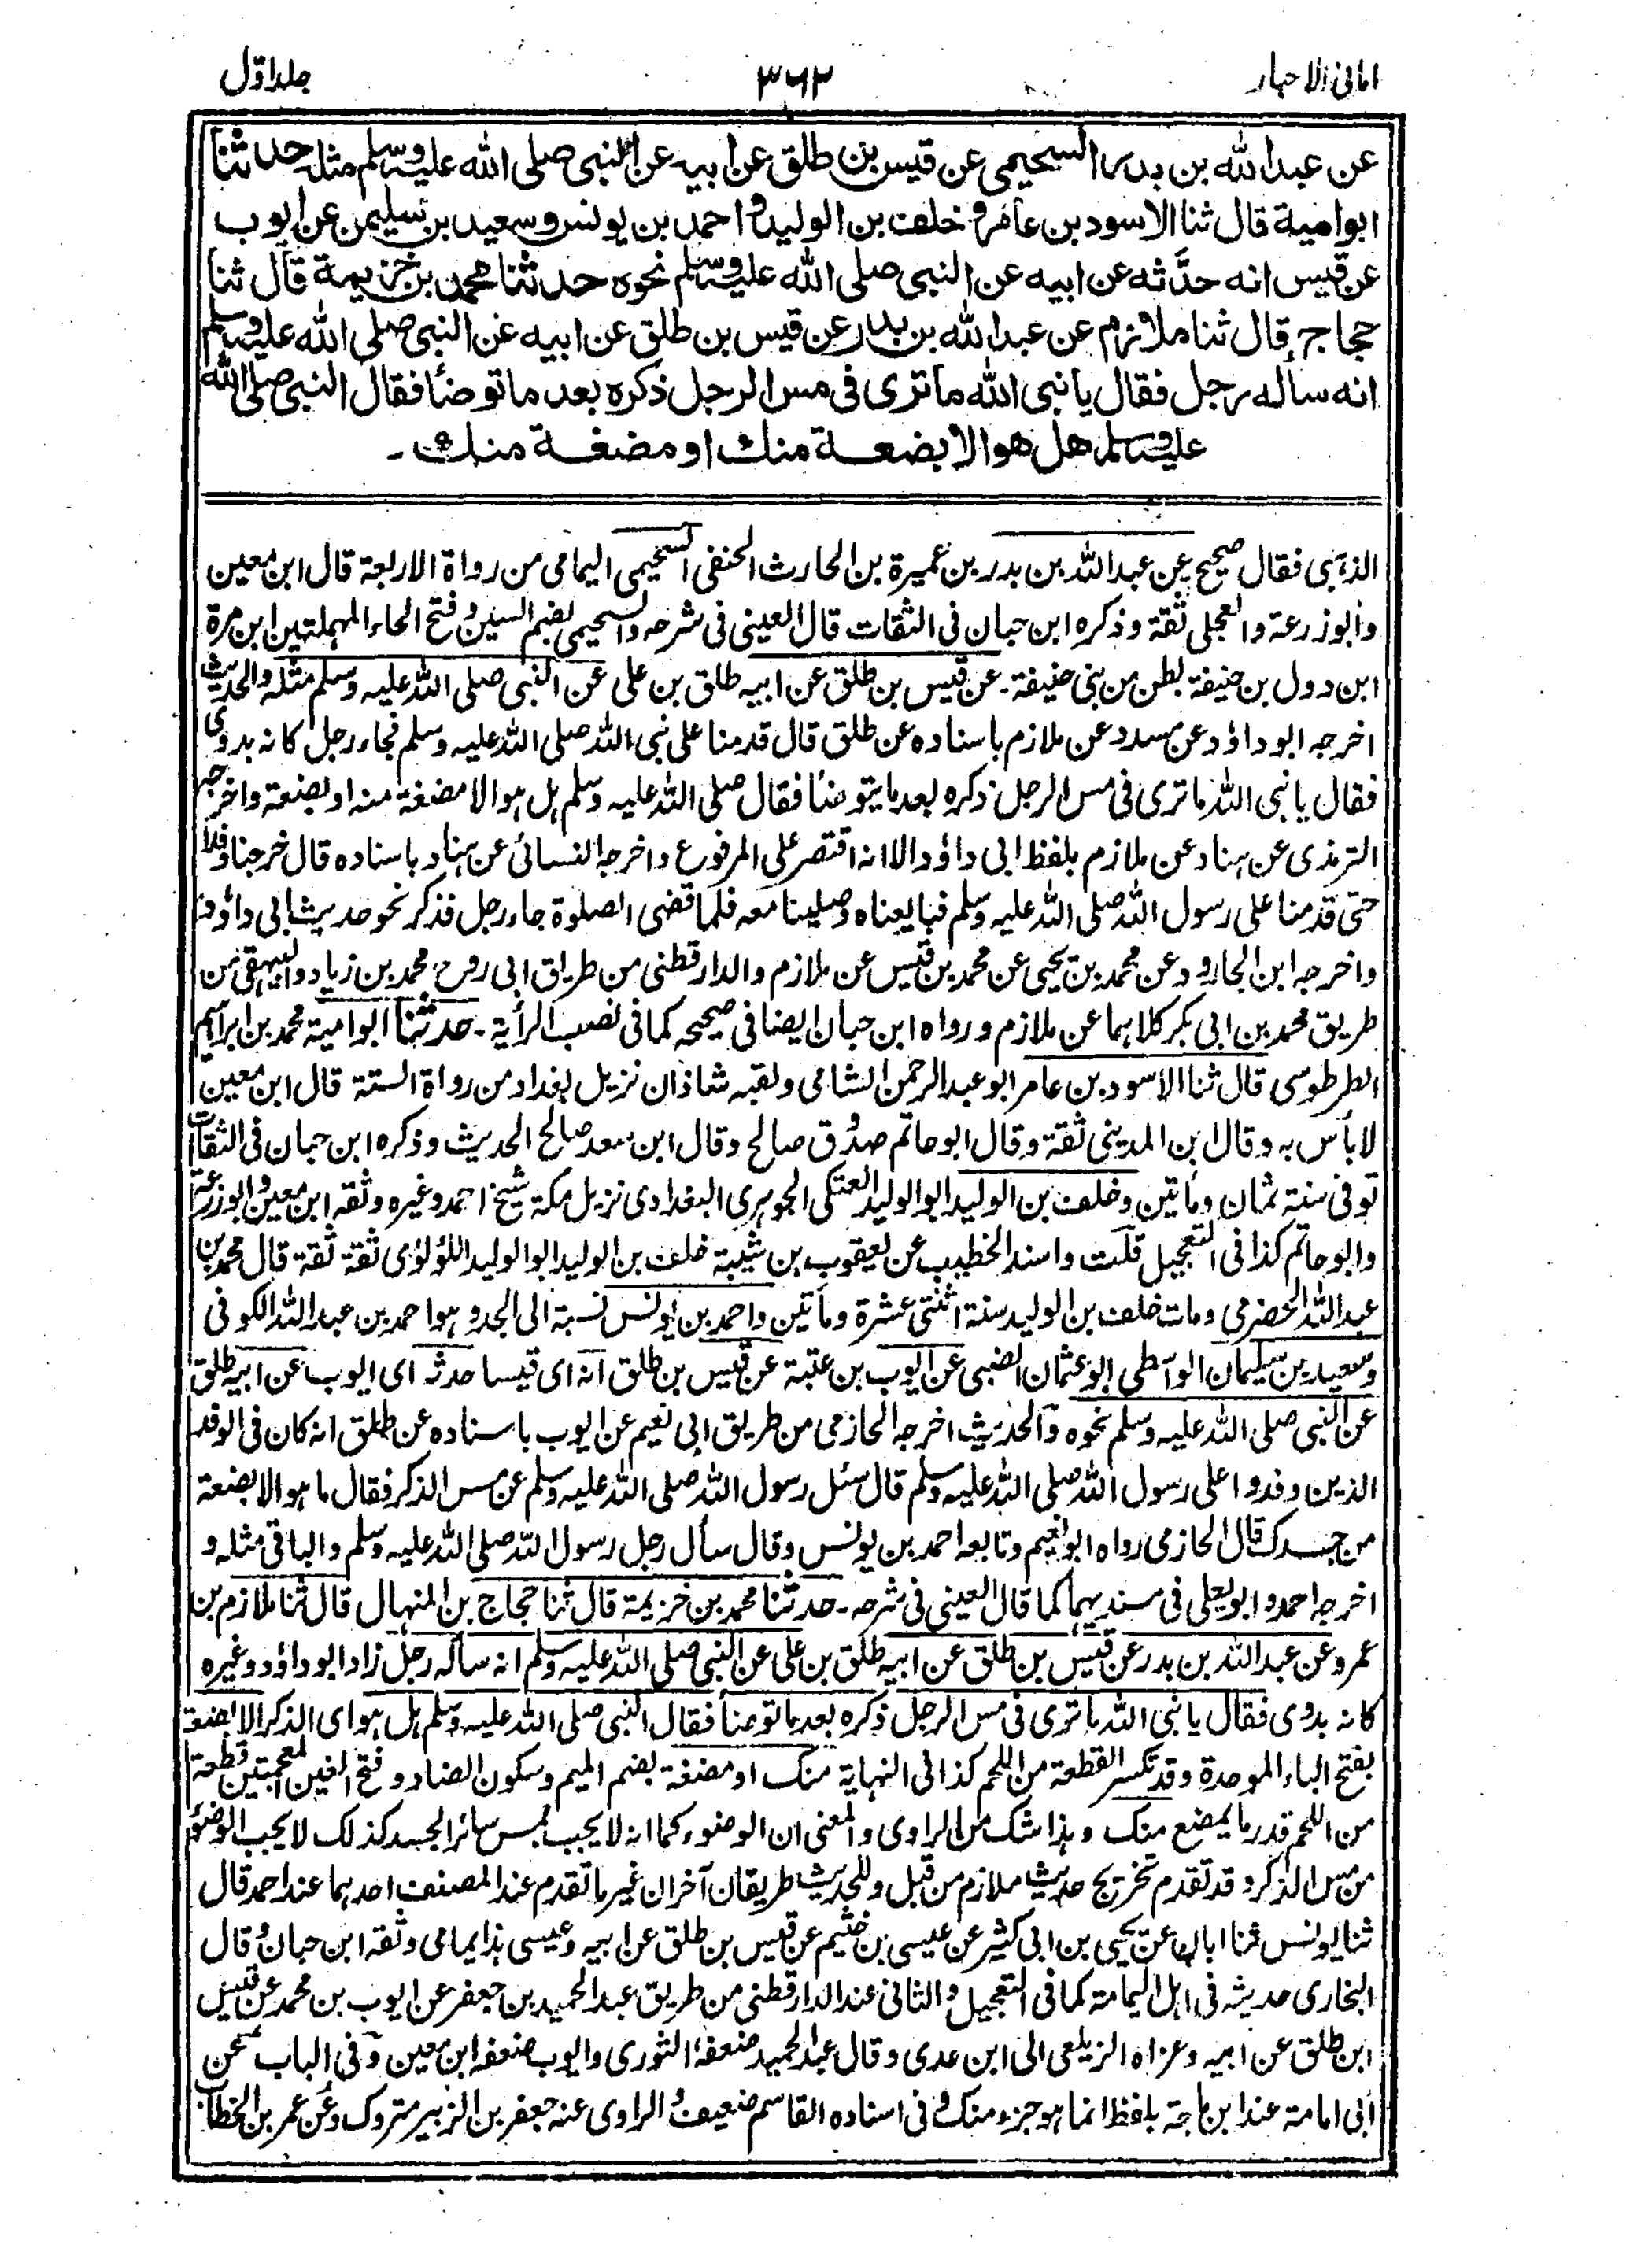 امانی الاحبار ۳۶۲ جلد اوّل
عن عبد الله بن بدر السحيمي عن قيس بن طلق عن ابيه عن النبي صلى الله عليه وسلم مثله حدثنا
ابو امية قال ثنا الاسود بن عامر و خلف بن الوليد و احمد بن يونس و سعيد بن سليمن عن ايوب
عن قيس انه حدَّثه عن ابيه عن النبي صلى الله عليه وسلم نحوه حدثنا محمد بن خزيمة قال ثنا
حجاج قال ثنا ملازم عن عبد الله بن بدر عن قيس بن طلق عن ابيه عن النبي صلى الله عليه وسلم
انه سأله رجل فقال يا نبي الله ما ترى في مس الرجل ذكره بعد ما توضأ فقال النبي صلى الله
عليه وسلم هل هو الا بضعة منك او مضغة منك ۔
الذهبي فقال صحيح عن عبد الله بن بدر بن عميرة بن الحارث الحنفي السحيمي اليمامي من رواة الاربعة قال ابن معين
وابو زرعة والعجلي ثقة وذكره ابن حبان في الثقات قال العيني في شرحه والسحيمي بضم السين وفتح الحاء المهملتين ابن مرة
ابن دول بن حنيفة بطن من بني حنيفة ۔ عن قيس بن طلق عن ابيه طلق بن علي عن النبي صلى الله عليه وسلم مثله والحديث
اخرجه ابو داؤد عن مسدد عن ملازم باسناده عن طلق قال قدمنا على نبي الله صلى الله عليه وسلم فجاء رجل كانه بدوي
فقال يا نبي الله ما ترى في مس الرجل ذكره بعد ما يتوضأ فقال صلى الله عليه وسلم هل هو الا مضغة منه او بضعة واخرجه
الترمذي عن هناد عن ملازم بلفظ ابي داؤد الا انه اقتصر على المرفوع واخرجه النسائي عن هناد باسناده قال خرجنا وفدا
حتى قدمنا على رسول الله صلى الله عليه وسلم فبايعناه وصلينا معه فلما قضى الصلوة جاء رجل فذكر نحو حديث ابي داؤد
واخرجه ابن الجارود عن محمد بن يحيى عن محمد بن قيس عن ملازم والدارقطني من طريق ابي روح محمد بن زياد والبيهقي من
طريق محمد بن ابي بكر كلاهما عن ملازم ورواه ابن حبان ايضا في صحيحه كما في نصب الرأية ۔ حدثنا ابو امية محمد بن ابراهيم
الطرطوسي قال ثنا الاسود بن عامر ابو عبد الرحمن الشامي ولقبه شاذان نزيل بغداد من رواة الستة قال ابن معين
لا بأس به وقال ابن المديني ثقة وقال ابو حاتم صدوق صالح وقال ابن سعد صالح الحديث وذكره ابن حبان في الثقات
توفي سنة ثمان ومأتين وخلف بن الوليد ابو الوليد العتكي الجوهري البغدادي نزيل مكة شيخ احمد وغيره وثقه ابن معين وابو زرعة
وابو حاتم كذا في التعجيل قلت واسند الخطيب عن يعقوب بن شيبة خلف بن الوليد ابو الوليد اللؤلؤي ثقة ثقة قال محمد بن
عبد الله الحضرمي ومات خلف بن الوليد سنة اثنتي عشرة ومأتين واحمد بن يونس نسبة الى الجد وهو احمد بن عبد الله الكوفي
وسعيد بن سليمان الواسطي ابو عثمان الضبي عن ايوب بن عتبة عن قيس بن طلق انه اي قيسا حدثه اي ايوب عن ابيه طلق
عن النبي صلى الله عليه وسلم نحوه والحديث اخرجه الحازمي من طريق ابي نعيم عن ايوب باسناده عن طلق انه كان في الوفد
الذين وفدوا على رسول الله صلى الله عليه وسلم قال سئل رسول الله صلى الله عليه وسلم عن مس الذكر فقال ما هو الا بضعة
من جسدك قال الحازمي رواه ابو نعيم وتابعه احمد بن يونس وقال سأل رجل رسول الله صلى الله عليه وسلم والباقي مثله و
اخرجه احمد وابو يعلى في مسنديهما كما قال العيني في شرحه ۔ حدثنا محمد بن خزيمة قال ثنا حجاج بن المنهال قال ثنا ملازم بن
عمرو عن عبد الله بن بدر عن قيس بن طلق عن ابيه طلق بن علي عن النبي صلى الله عليه وسلم انه سأله رجل زاد ابو داؤد وغيره
كانه بدوي فقال يا نبي الله ما ترى في مس الرجل ذكره بعد ما توضأ فقال النبي صلى الله عليه وسلم هل هو اي الذكر الا بضعة
بفتح الباء الموحدة وقد تكسر القطعة من اللحم كذا في النهاية منك او مضغة بضم الميم وسكون الضاد وفتح الغين المعجمتين قطعة
من اللحم قدر ما يمضغ منك وهذا شك من الراوي والمعنى ان الوضوء كما انه لا يجب بمس سائر الجسد كذلك لا يجب الوضوء
من مس الذكر وقد تقدم تخريج حديث ملازم من قبل وللحديث طريقان آخران غير ما تقدم عند المصنف احدهما عند احمد قال
ثنا يونس ثنا ابان عن يحيى بن ابي كثير عن عيسى بن خثيم عن قيس بن طلق عن ابيه وعيسى هذا يمامي وثقه ابن حبان وقال
البخاري حديثه في اهل اليمامة كما في التعجيل والثاني عند الدارقطني من طريق عبد الحميد بن جعفر عن ايوب بن محمد عن قيس
ابن طلق عن ابيه وعزاه الزيلعي الى ابن عدي وقال عبد الحميد ضعفه الثوري وايوب ضعفه ابن معين وفي الباب عن
ابي امامة عند ابن ماجة بلفظ انما هو جزء منك وفي اسناده القاسم ضعيف والراوي عنه جعفر بن الزبير متروك وعن عمر بن الخطاب